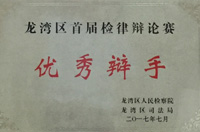 龙湾区首届检律辩论赛
优秀辩手
龙湾区人民检察院
龙湾区司法局
二○一七年七月